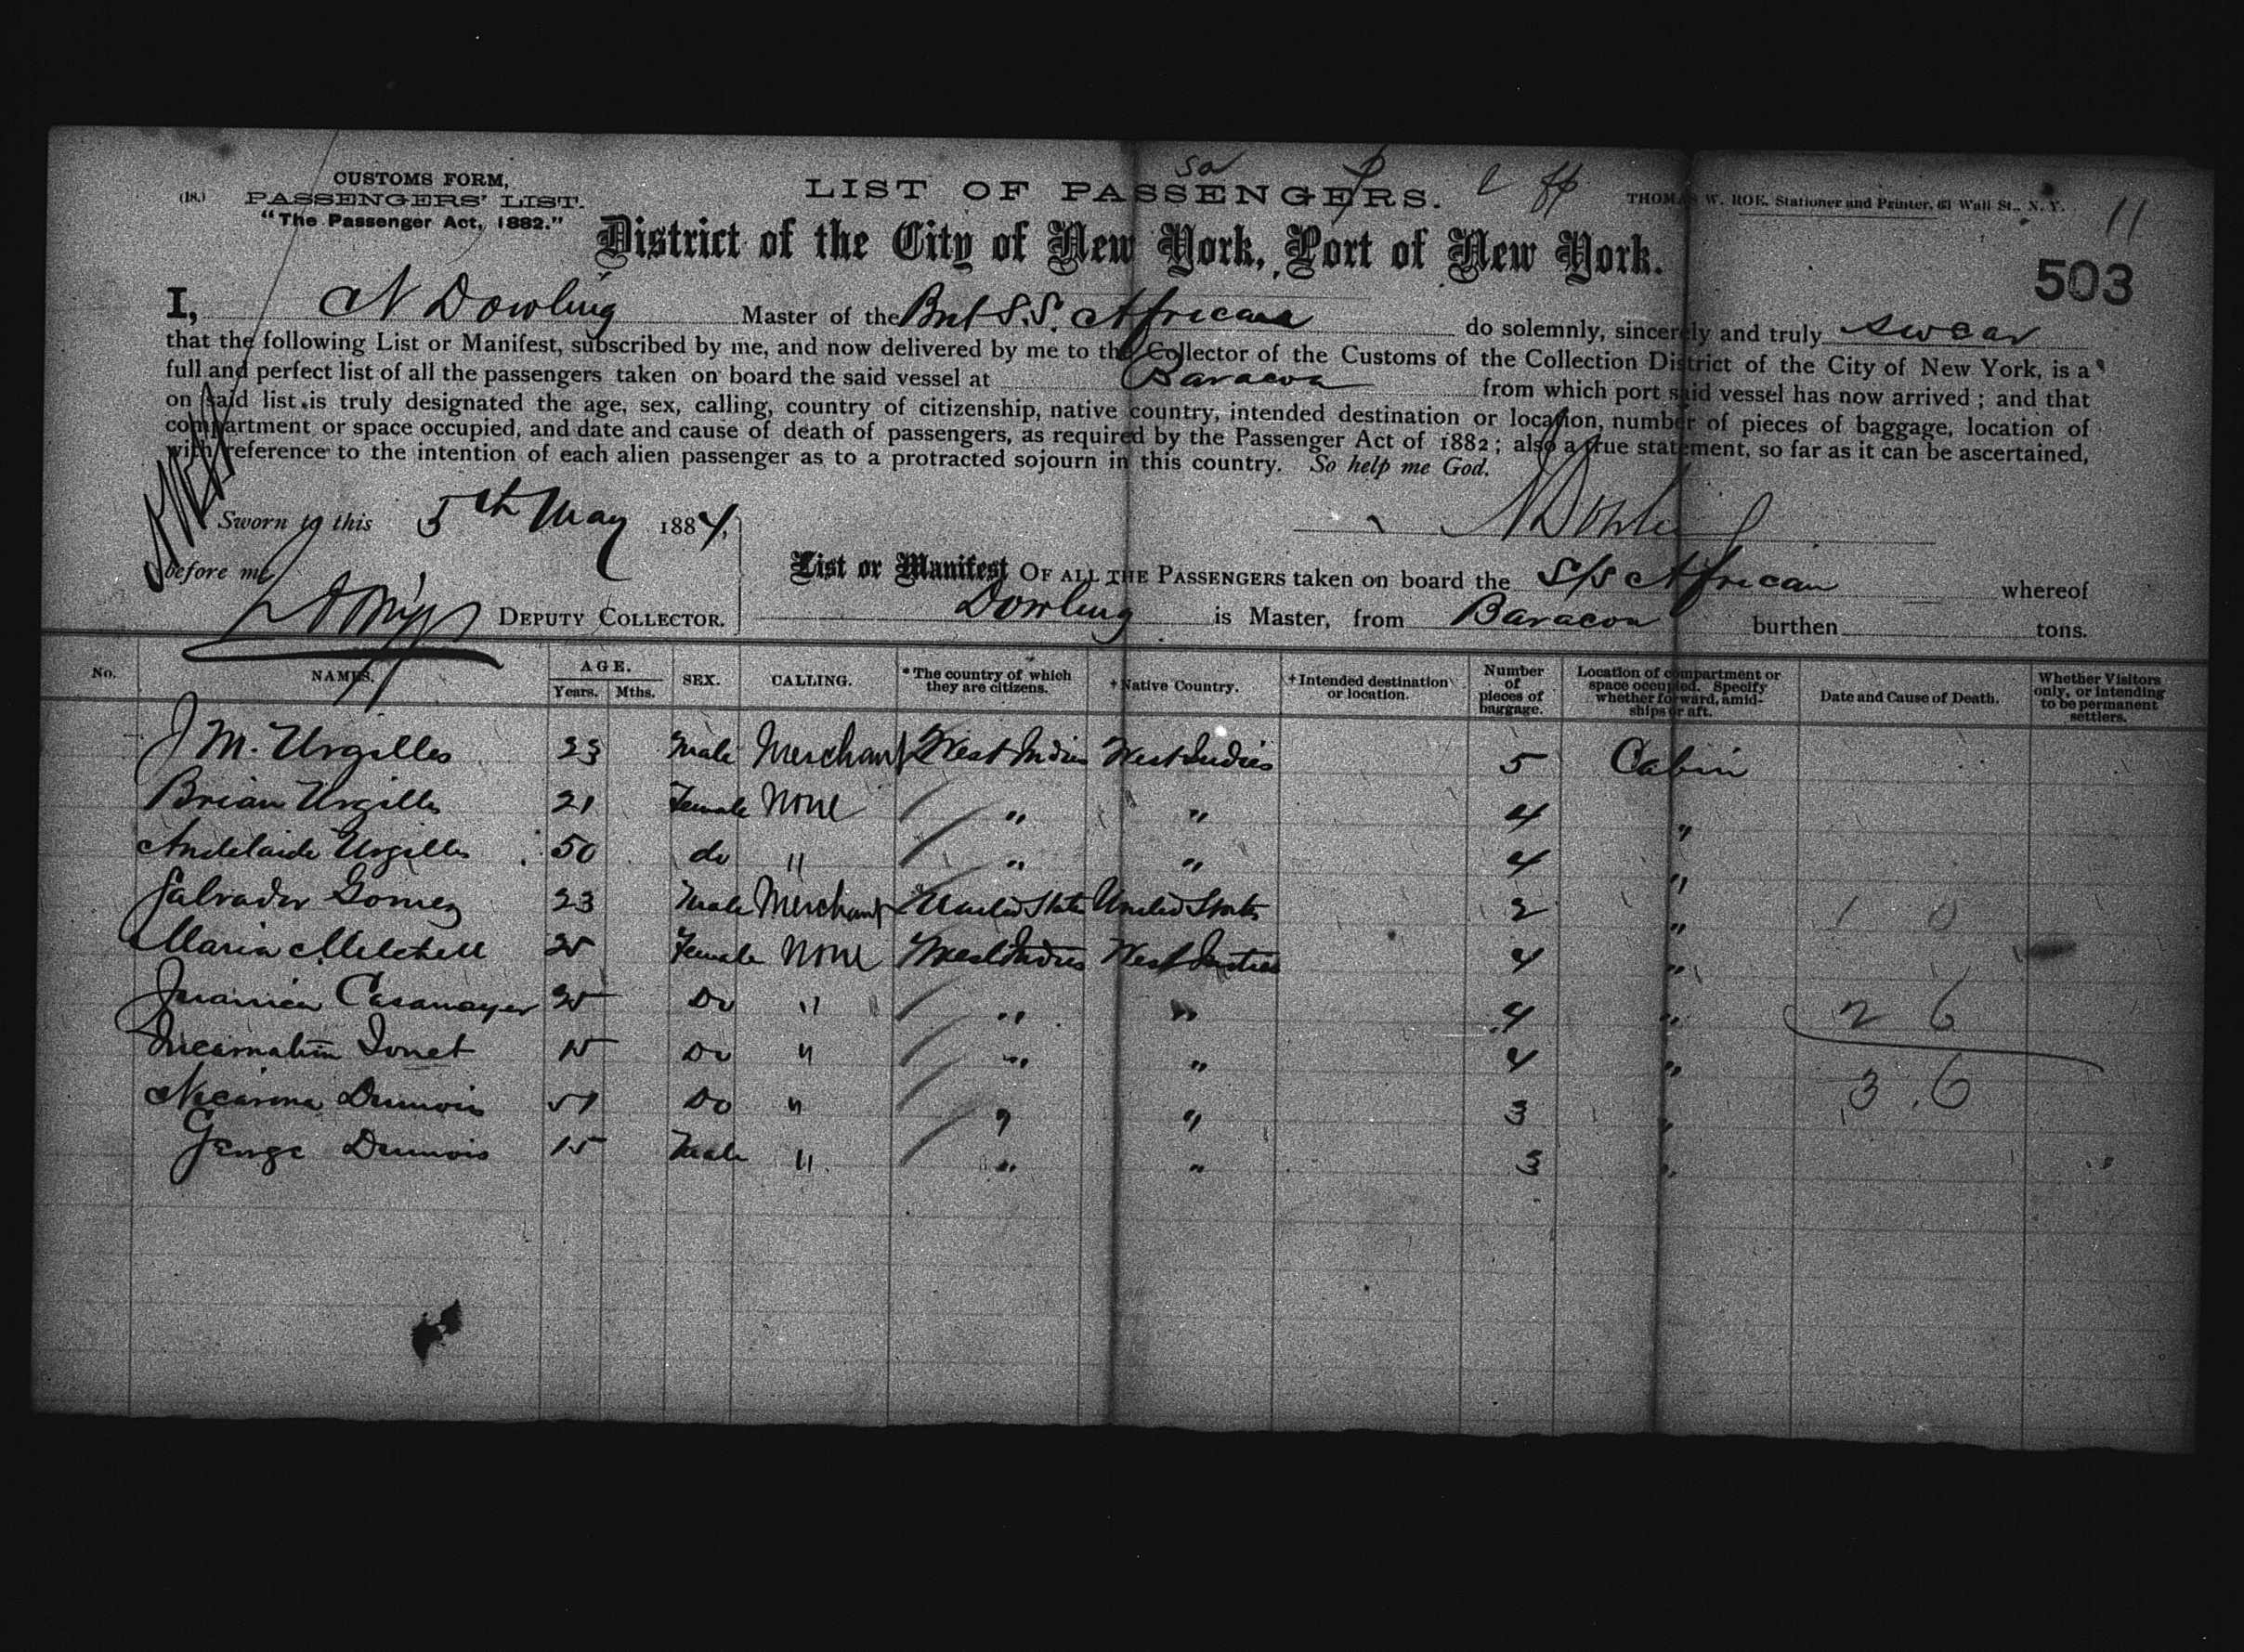 CUSTOMS FORM,
(18.) PASSENGERS' LIST.
"The Passenger Act, 1882."
LIST OF PASSENGERS.
THOMAS W. ROE, Stationer and Printer, 61 Wall St., N. Y.
11
District of the City of New York, Port of New York.
503
I, N Dowling Master of the Brit S.S. African do solemnly, sincerely and truly swear
that the following List or Manifest, subscribed by me, and now delivered by me to the Collector of the Customs of the Collection District of the City of New York, is a
full and perfect list of all the passengers taken on board the said vessel at Baracoa from which port said vessel has now arrived; and that
on said list is truly designated the age, sex, calling, country of citizenship, native country, intended destination or location, number of pieces of baggage, location of
compartment or space occupied, and date and cause of death of passengers, as required by the Passenger Act of 1882; also a true statement, so far as it can be ascertained,
with reference to the intention of each alien passenger as to a protracted sojourn in this country. So help me God.
Sworn to this 5th May 1884,
N Dowling
before me
List or Manifest OF ALL THE PASSENGERS taken on board the S/S African whereof
DEPUTY COLLECTOR.
Dowling is Master, from Baracoa burthen tons.
No. NAMES. AGE. Years. Mths. SEX. CALLING. *The country of which they are citizens. +Native Country. +Intended destination or location. Number of pieces of baggage. Location of compartment or space occupied. Specify whether forward, amidships or aft. Date and Cause of Death. Whether Visitors only, or intending to be permanent settlers.
J M. Urgilles 23 Male Merchant West Indies West Indies 5 Cabin
Brian Urgilles 21 Female None " " 4 "
Andelaide Urgilles 50 do " " " 4 "
Salvador Gomez 23 Male Merchant United States United States 2 " 1 0
Maria Mitchell Female None West Indies West Indies 4 "
Do " " " 4 " 2 6
15 Do " " " 4 "
Dumois 51 Do " " " 3 " 3 6
George Dumois 15 Male " " " 3 "